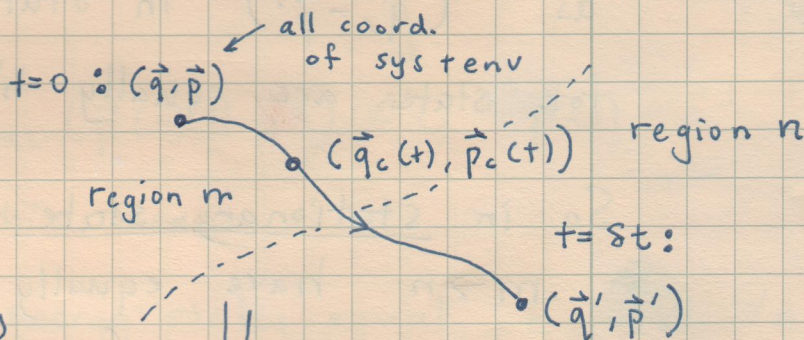 all coord.
of sys + env
t=0 : (q⃗, p⃗)
(q⃗c(t), p⃗c(t))
region n
region m
t= δt :
(q⃗', p⃗')